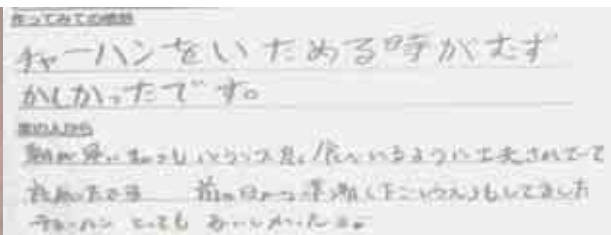 作ってみての感想
チャーハンをいためる時がむず
かしかったです。
家の人から
朝が早いもっと バランス良く食べれるように工夫されてて
良かったです 前の日から準備(下ごしらえ)もしてました
チャーハン とっても おいしかったよ。